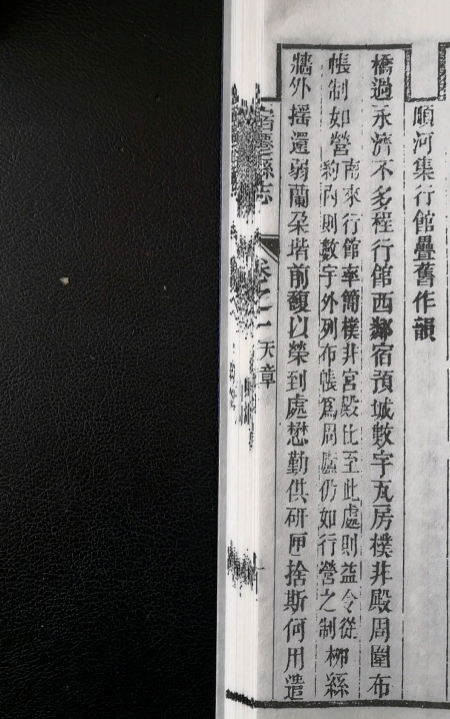 順河集行館疊舊作韻
橋過永濟不多程行館西鄰宿預城數字瓦房樸非殿周圍布
帳制如營南來行館率簡樸非宮殿比至此處則益令從
豹房則數字外列布帳爲周廬仍如行營之制柳絲
牆外搖還弱蘭朶堦前馥以榮到處懋勤供研匣捨斯何用遣
宿遷縣志
卷之一
天章